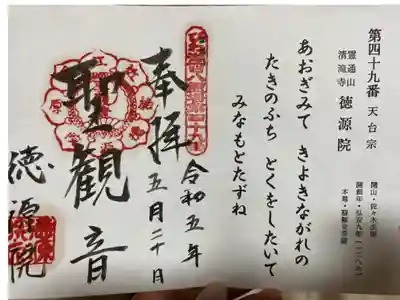 第四十九番 天台宗
霊通山
清滝寺 徳源院
開山・佐々木氏信
開創年・弘安九年(一二八六)
本尊・聖観世音菩薩
あおぎみて きよきながれの
たきのふち とくをしたいて
みなもとたずね
奉拝
令和五年
五月二十日
聖観音
徳源院